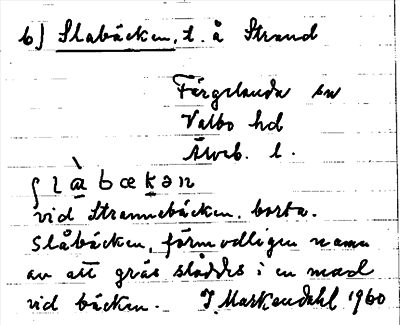 b) Slabäcken, t. å Strand
Färgelanda sn
Valbo hd
Älvsb. l.
ʃlàbœkən
vid Strannebäcken, borta.
Slåbäcken, förmodligen namn
av att gräs slåddes i en mad
vid bäcken. J. Markendahl 1960